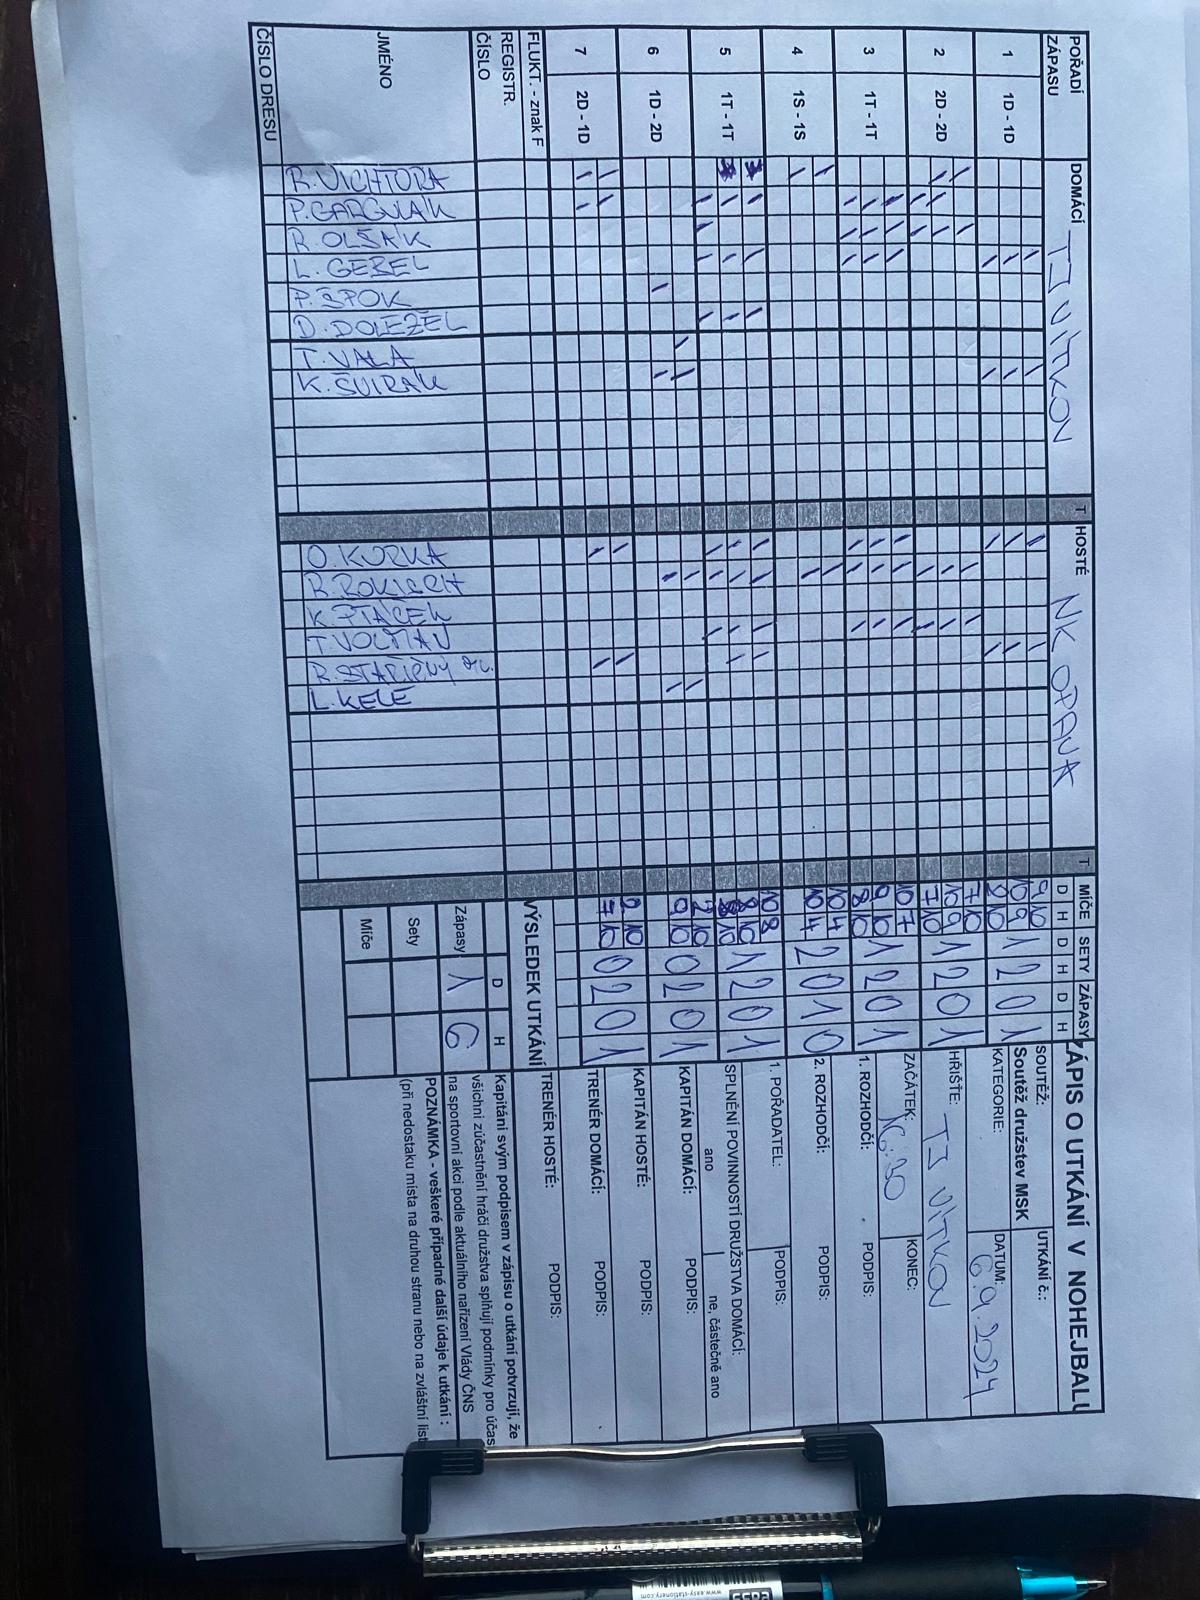 ZÁPIS O UTKÁNÍ V NOHEJBALU
SOUTĚŽ: UTKÁNÍ č.:
Soutěž družstev MSK
KATEGORIE: DATUM: 6.9.2024
HŘIŠTĚ: TJ VÍTKOV
ZAČÁTEK: 16:30 KONEC:
1. ROZHODČÍ: PODPIS:
2. ROZHODČÍ: PODPIS:
1. POŘADATEL: PODPIS:
SPLNĚNÍ POVINNOSTÍ DRUŽSTVA DOMÁCÍ:
ano ne, částečně ano
KAPITÁN DOMÁCÍ: PODPIS:
KAPITÁN HOSTÉ: PODPIS:
TRENÉR DOMÁCÍ: PODPIS:
TRENÉR HOSTÉ: PODPIS:
Kapitáni svým podpisem v zápisu o utkání potvrzují, že
všichni zúčastnění hráči družstva splňují podmínky pro účast
na sportovní akci podle aktuálního nařízení Vlády ČNS
POZNÁMKA - veškeré případné další údaje k utkání :
(při nedostatku místa na druhou stranu nebo na zvláštní list
POŘADÍ ZÁPASU DOMÁCÍ TJ VÍTKOV T HOSTÉ NK OPAVA T MÍČE SETY ZÁPASY
D H D H D H
1 1D - 1D 9 10 10 9 8 10 1 2 0 1
2 2D - 2D 7 10 10 9 7 10 1 2 0 1
3 1T - 1T 10 7 9 10 8 10 1 2 0 1
4 1S - 1S 10 4 10 4 2 0 1 0
5 1T - 1T 10 8 8 10 8 10 1 2 0 1
6 1D - 2D 7 10 9 10 0 2 0 1
7 2D - 1D 9 10 7 10 0 2 0 1
FLUKT. - znak F
REGISTR. ČÍSLO
JMÉNO
ČÍSLO DRESU
R. VICHTORA
P. GARGULAK
R. OLŠÁK
L. GEBEL
P. ŠPOK
D. DOLEŽEL
T. VALA
K. ŠVIRAK
O. KURKA
K. PTÁČEK
T. VOLTMAN
L. KELE
VÝSLEDEK UTKÁNÍ
D H
Zápasy 1 6
Sety
Míče